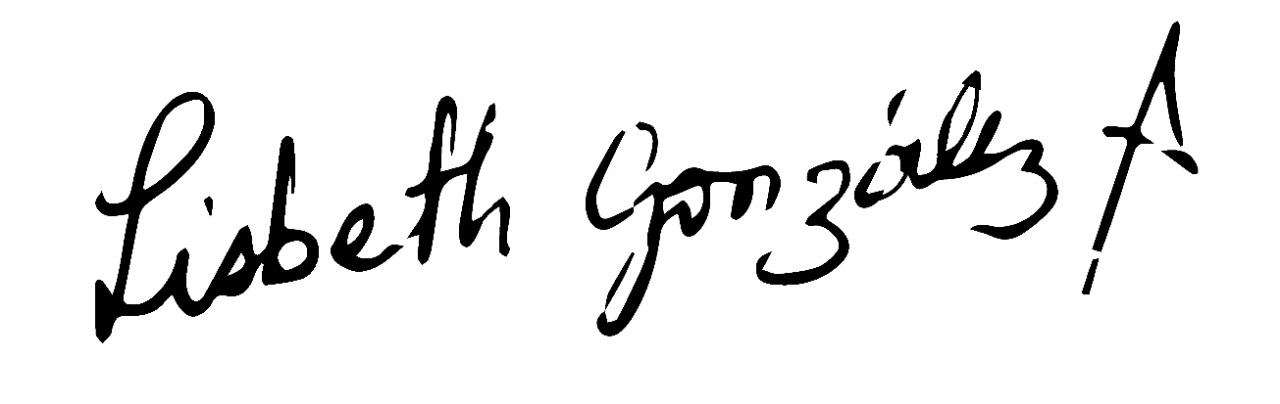 Lisbeth González A